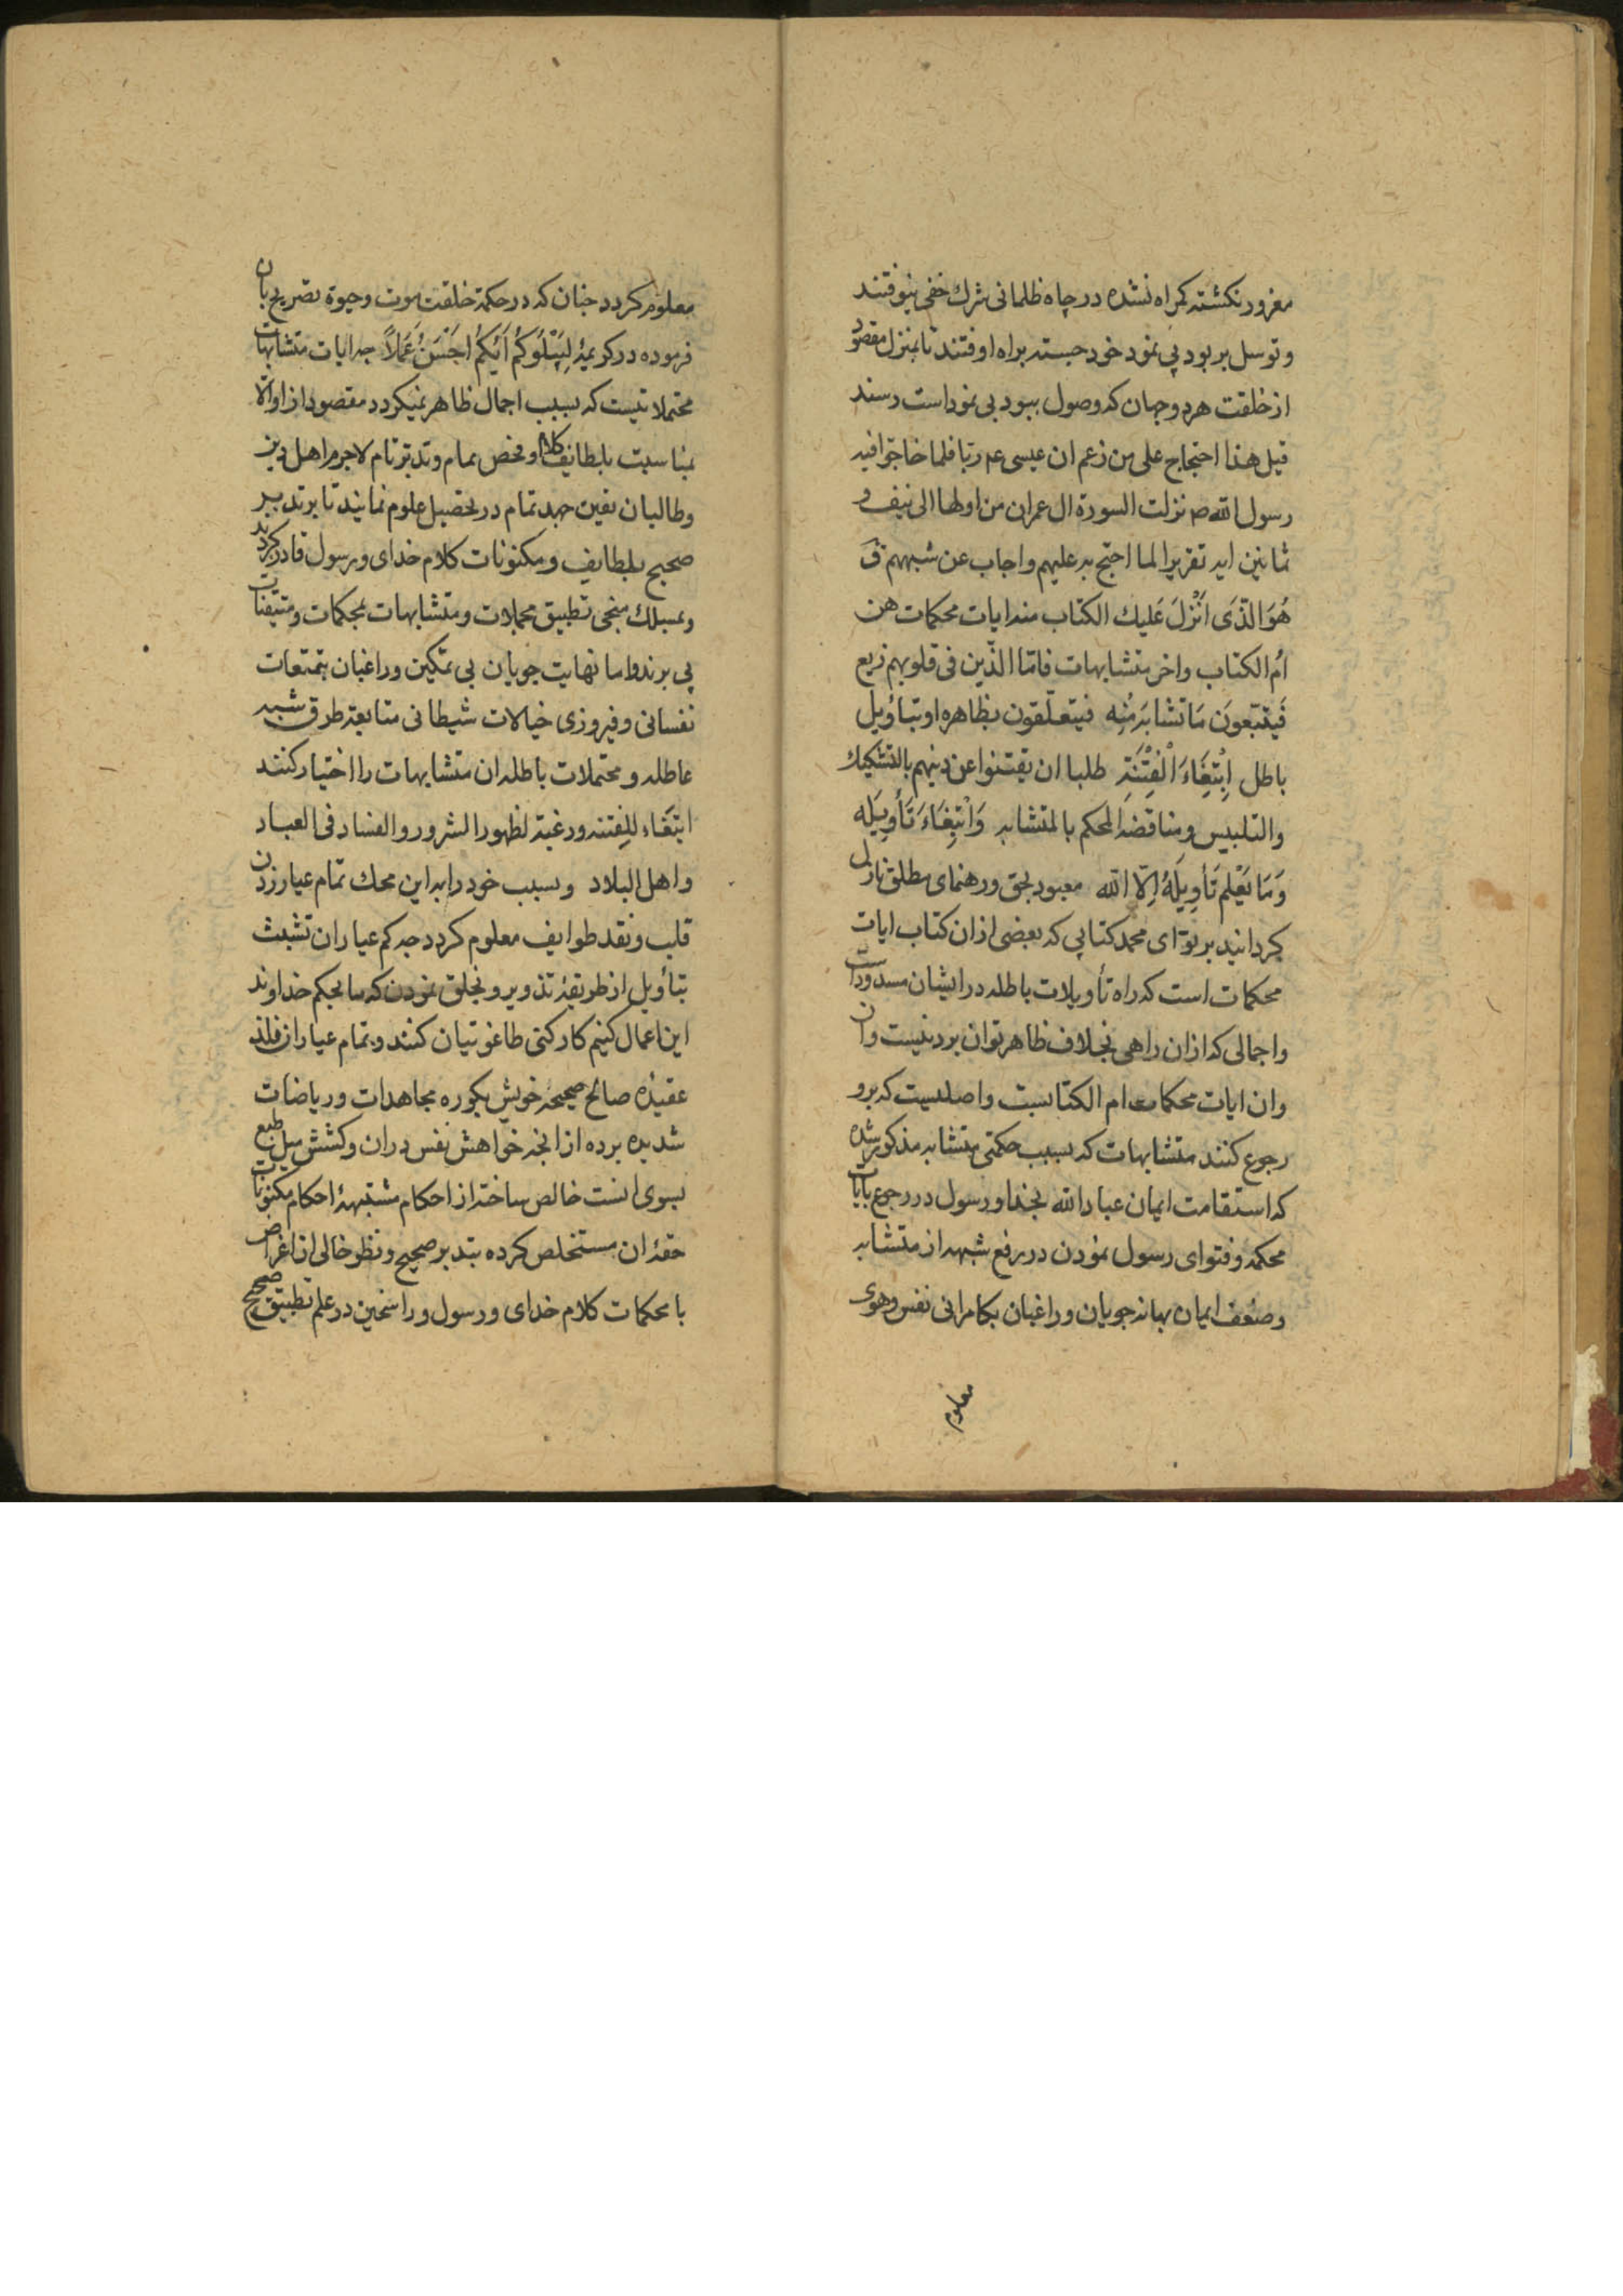 مغرور نکشته کمراه نشده در چاه ظلمانی شرك خفی نیوفتند
و توسل بر بود بی نمود خود جسته براه اوفتند تا بمنزل مقصود
از خلقت هر دو جهان که وصول ببود بی نمود است رسند
قیل هذا احتجاج علی من زعم ان عیسی عم ربا فلما حاجوا فیه
رسول الله صم نزلت السورة ال عمران من اولها الی نیف و
ثمانین ایه تقریرا لما احتج به علیهم واجاب عن شبههم ق
هُوَ الَّذی اَنْزَلَ عَلیك الکتاب منه ایات محکمات هن
اُم الکتاب واخر متشابهات فامّا الّذین فی قلوبهم زیغ
فَیَتَّبعونَ مَا تَشابَهَ مِنْهِ فیتعلّقون بظاهره او بتاویل
باطل اِبْتِغَاءَ الْفِتْنَةِ طلبا ان یفتنوا عن دینهم بالتشکیك
والتلبیس ومناقضة المحکم بالمتشابه وَابْتِغَاءَ تَأْوِیلِه
وَمَا یَعْلَم تَأوِیلَهُ اِلاّ الله معبود بحق و رهنمای مطلق نازل
کردانید بر تو ای محمد کتابی که بعضی از ان کتاب ایات
محکمات است که راه تأویلات باطله در ایشان مسدود است
واجمالی که از ان راهی بخلاف ظاهر توان برد نیست وان
وان ایات محکمات ام الکتابست واصلیست که برو
رجوع کنند متشابهات که بسبب حکمتی متشابه مذکور شده
که استقامت ایمان عباد الله بخدا ورسول در رجوع بایات
محکمه وفتوای رسول نمودن در رفع شبهه از متشابه
وضعف ایمان بهانه جویان وراغبان بکامرانی نفس وهوی
معلوم
معلوم کردد جنان که در حکمة خلقت موت وحیوة تصریح بان
فرموده در کریمهٔ لِیَبْلُوَکُمْ اَیُّکُمْ اَحْسَنُ عَمَلاً جه ایات متشابهات
محتملاتیست که بسبب اجمال ظاهر نمیکردد مقصود از او الا
بمناسبت بلطایف کلام و فحص تمام وتدبّر تام لاجرم اهل دین
وطالبان یقین جهد تمام در تحصیل علوم نمایند تا بر تدبیر
صحیح بلطایف ومکنونات کلام خدای ورسول قادر کردند
وبمسلك منجی تطبیق مجملات ومتشابهات بمحکمات ومتیقنات
پی برند واما نهایت جویان بی تمکین وراغبان بتمتعات
نفسانی وفیروزی خیالات شیطانی متابعة طرق شبه
عاطله ومحتملات باطله ان متشابهات را اختیار کنند
ابتغَاء لِلفِتنه ورغبة لظهور الشرور والفساد فی العباد
واهل البلاد وبسبب خود را به این محك تمام عیار زدن
قلب ونقد طوایف معلوم کردد جه کم عیاران تشبث
بتأویل از طریقهٔ تذویر وتخلق نمودن که ما بحکم خداوند
این اعمال کنیم کارکنی طاغوتیان کنند وتمام عیاران فلذ
عقیدهٔ صالح صحیحهٔ خویش بکوره مجاهدات وریاضات
شدیده برده از انجه خواهش نفس در ان وکشش میل طبع
بسوی انست خالص ساخته از احکام مشتبههٔ احکام مکنونات
حقهٔ ان مستخلص کرده بتدبر صحیح ونظر خالی از اغراض
با محکمات کلام خدای ورسول وراسخین در علم تطبیق صحیح